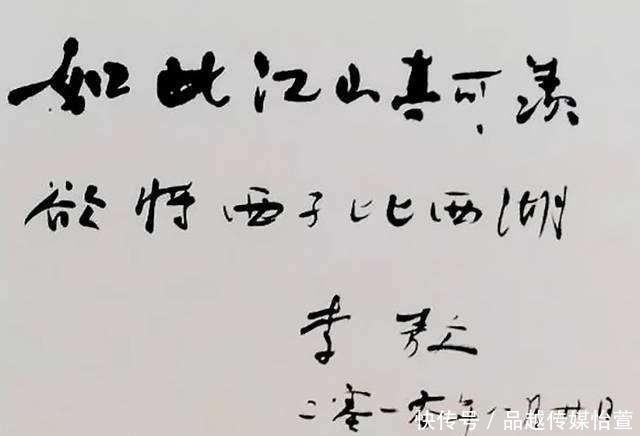 如此江山真可羡
欲将西子比西湖
李敖
二零一零年八月廿日
快传号 / 品越传媒怡萱